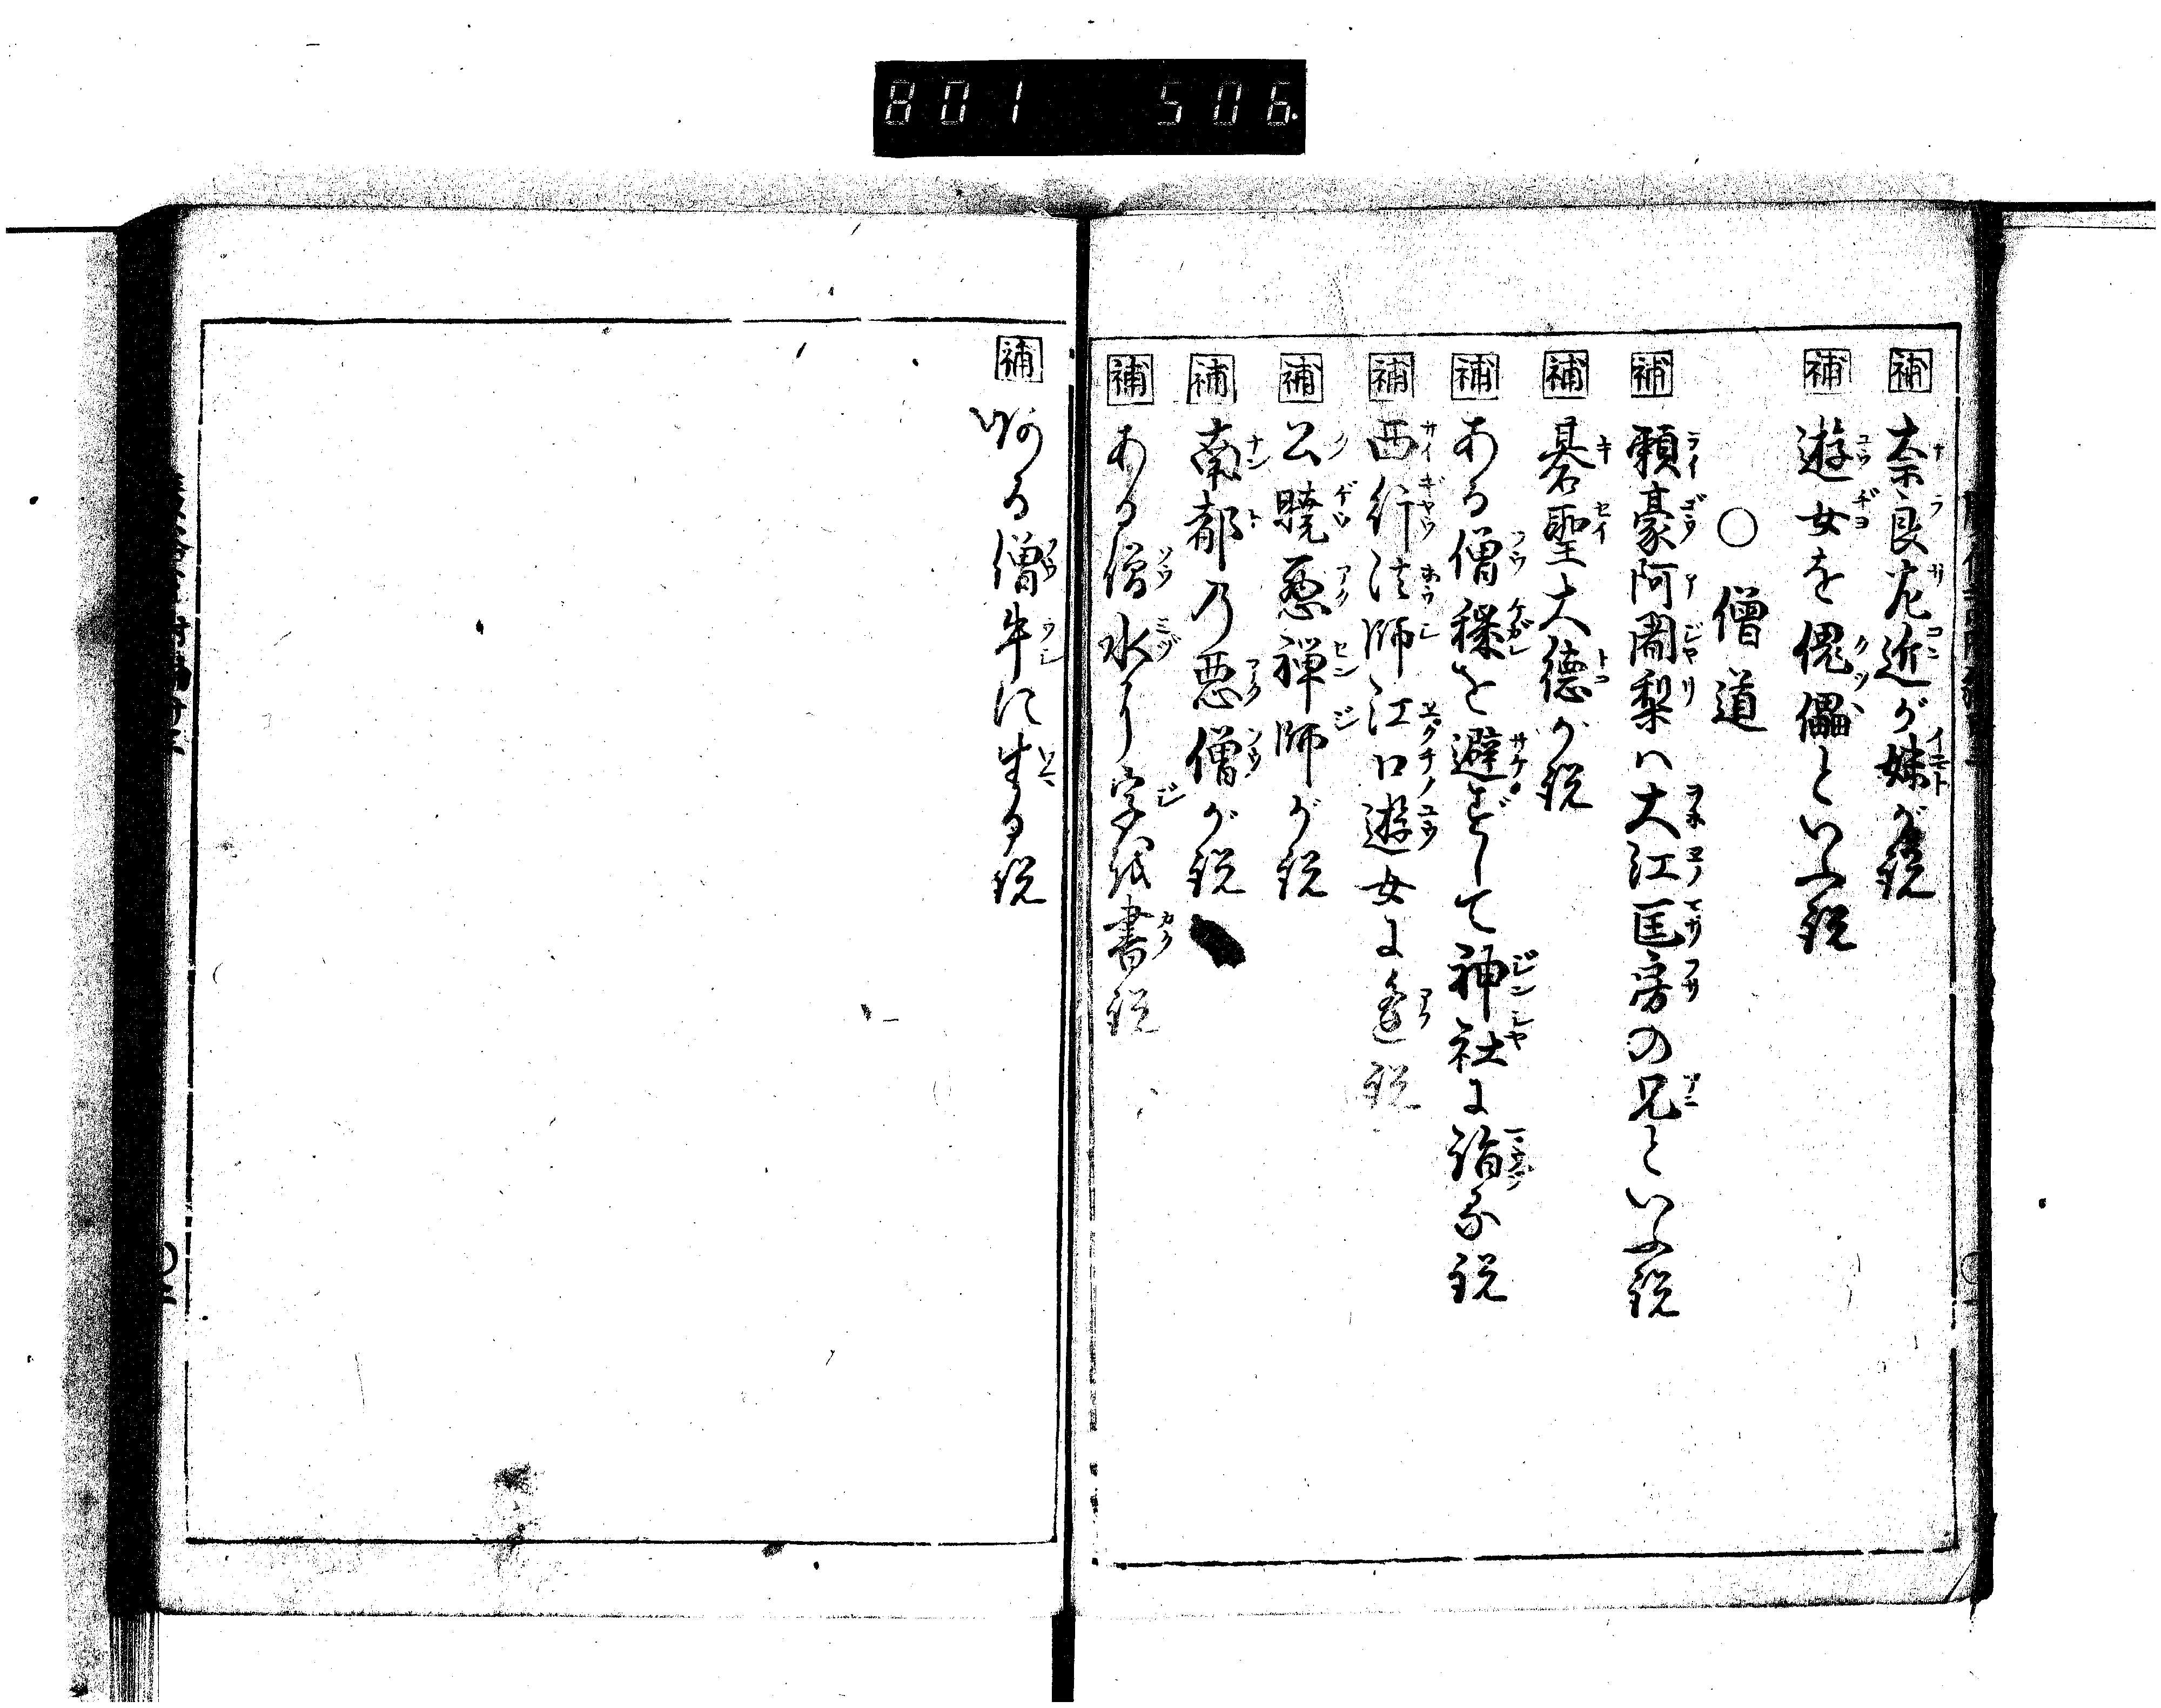 801 506
補 奈良左近が妹が説
補 遊女を傀儡といふ説
○ 僧道
補 頼豪阿闍梨ハ大江匡房の兄といふ説
補 碁聖大徳が説
補 ある僧穢を避ずして神社に詣る説
補 西行法師江口遊女に逢説
補 公暁悪禅師が説
補 南都乃悪僧が説
補 ある僧水に字を書説
補 ある僧牛に生る説